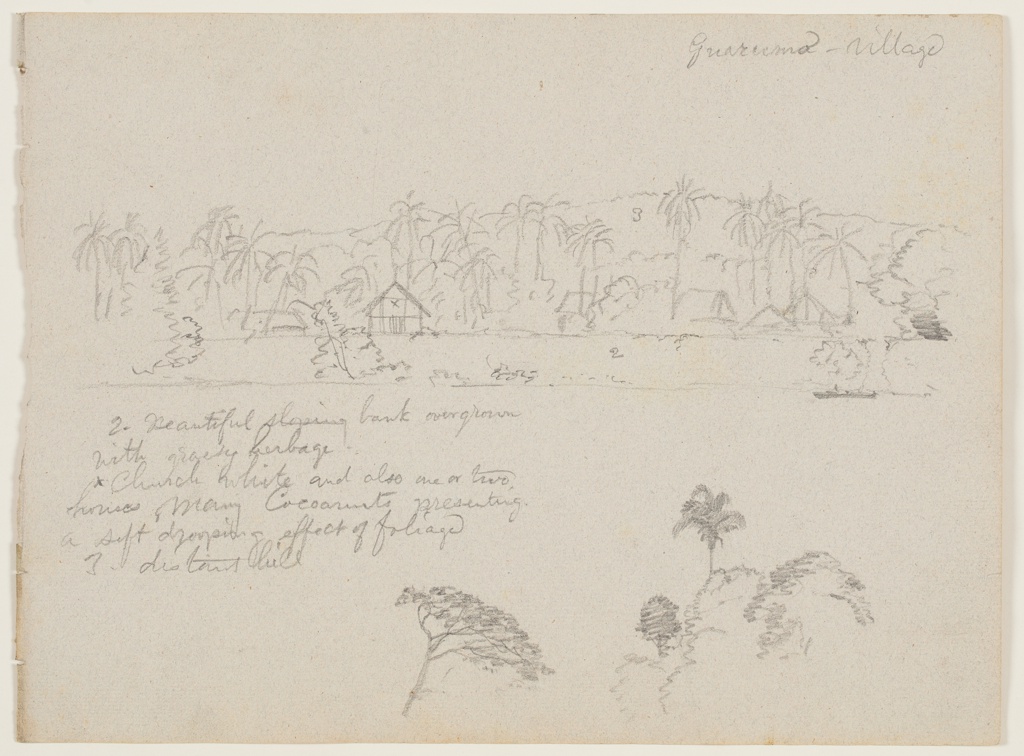 Guarumo - Village
3
2
2. Beautiful sloping bank overgrown
with grassy herbage.
x Church white and also one or two
houses, Many Cocoanuts presenting
a soft drooping effect of foliage
3. distant hill